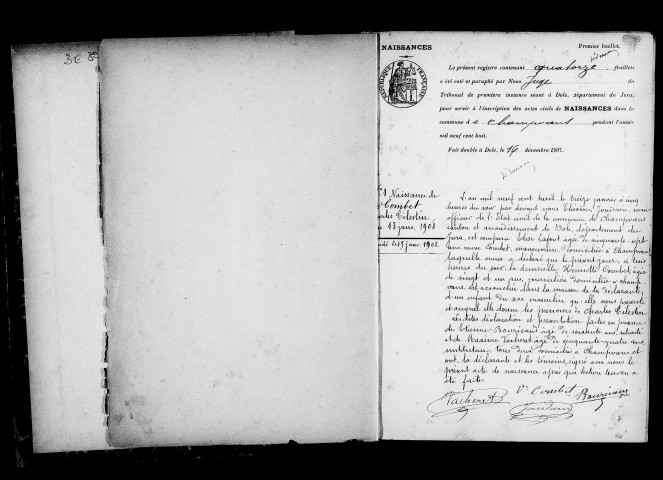 3E
NAISSANCES
Premier feuillet.
Le présent registre contenant quatorze feuillets
a été coté et paraphé par Nous Juge du
Tribunal de première instance séant à Dole, département du Jura,
pour servir à l'inscription des actes civils de NAISSANCES dans la
commune de Champvans pendant l'année
mil neuf cent huit.
Fait double à Dole, le 16 décembre 1907.
RÉPUBLIQUE FRANÇAISE
1 Naissance de
Combet
Charles Célestin
13 janv. 1908
le 13 janv. 1908.
L'an mil neuf cent huit le treize janvier à cinq
heures du soir par devant nous Jourdain, maire
officier de l'Etat civil de la commune de Champvans
canton et arrondissement de Dole, département du
Jura, est comparue Elise Lafont âgée de cinquante-sept
ans, veuve Combet, manouvrière domiciliée à Champvans
laquelle nous a déclaré que le présent jour, à trois
heures du soir, la demoiselle Henriette Combet âgée
de vingt et un ans, journalière domiciliée à Champ
vans, est accouchée dans la maison de la déclarante,
d'un enfant du sexe masculin qu'elle nous présente
et auquel elle donne les prénoms de Charles Célestin
Lesdites déclaration et présentation faites en présence
de Etienne Bourgeaud âgé de soixante ans, retraité
et de Maxime Vacheret âgé de cinquante quatre ans
instituteur, tous deux domiciliés à Champvans et
ont, la déclarante et les témoins, signé avec nous le
présent acte de naissance après que lecture leur en a
été faite.
Vacheret Ve Combet
Jourdain